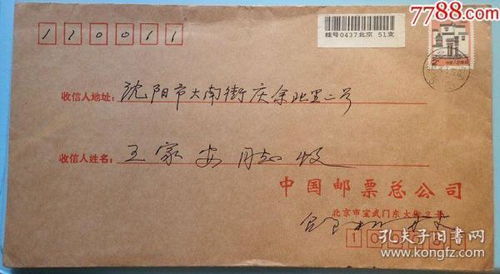 7788.com
110011
挂号0437北京 51支
收信人地址:
沈阳市大南街庆余北里二号
收信人姓名:
王家安同志收
中国邮票总公司
北京市宣武门东大街2号
孔夫子旧书网
kongfz.com